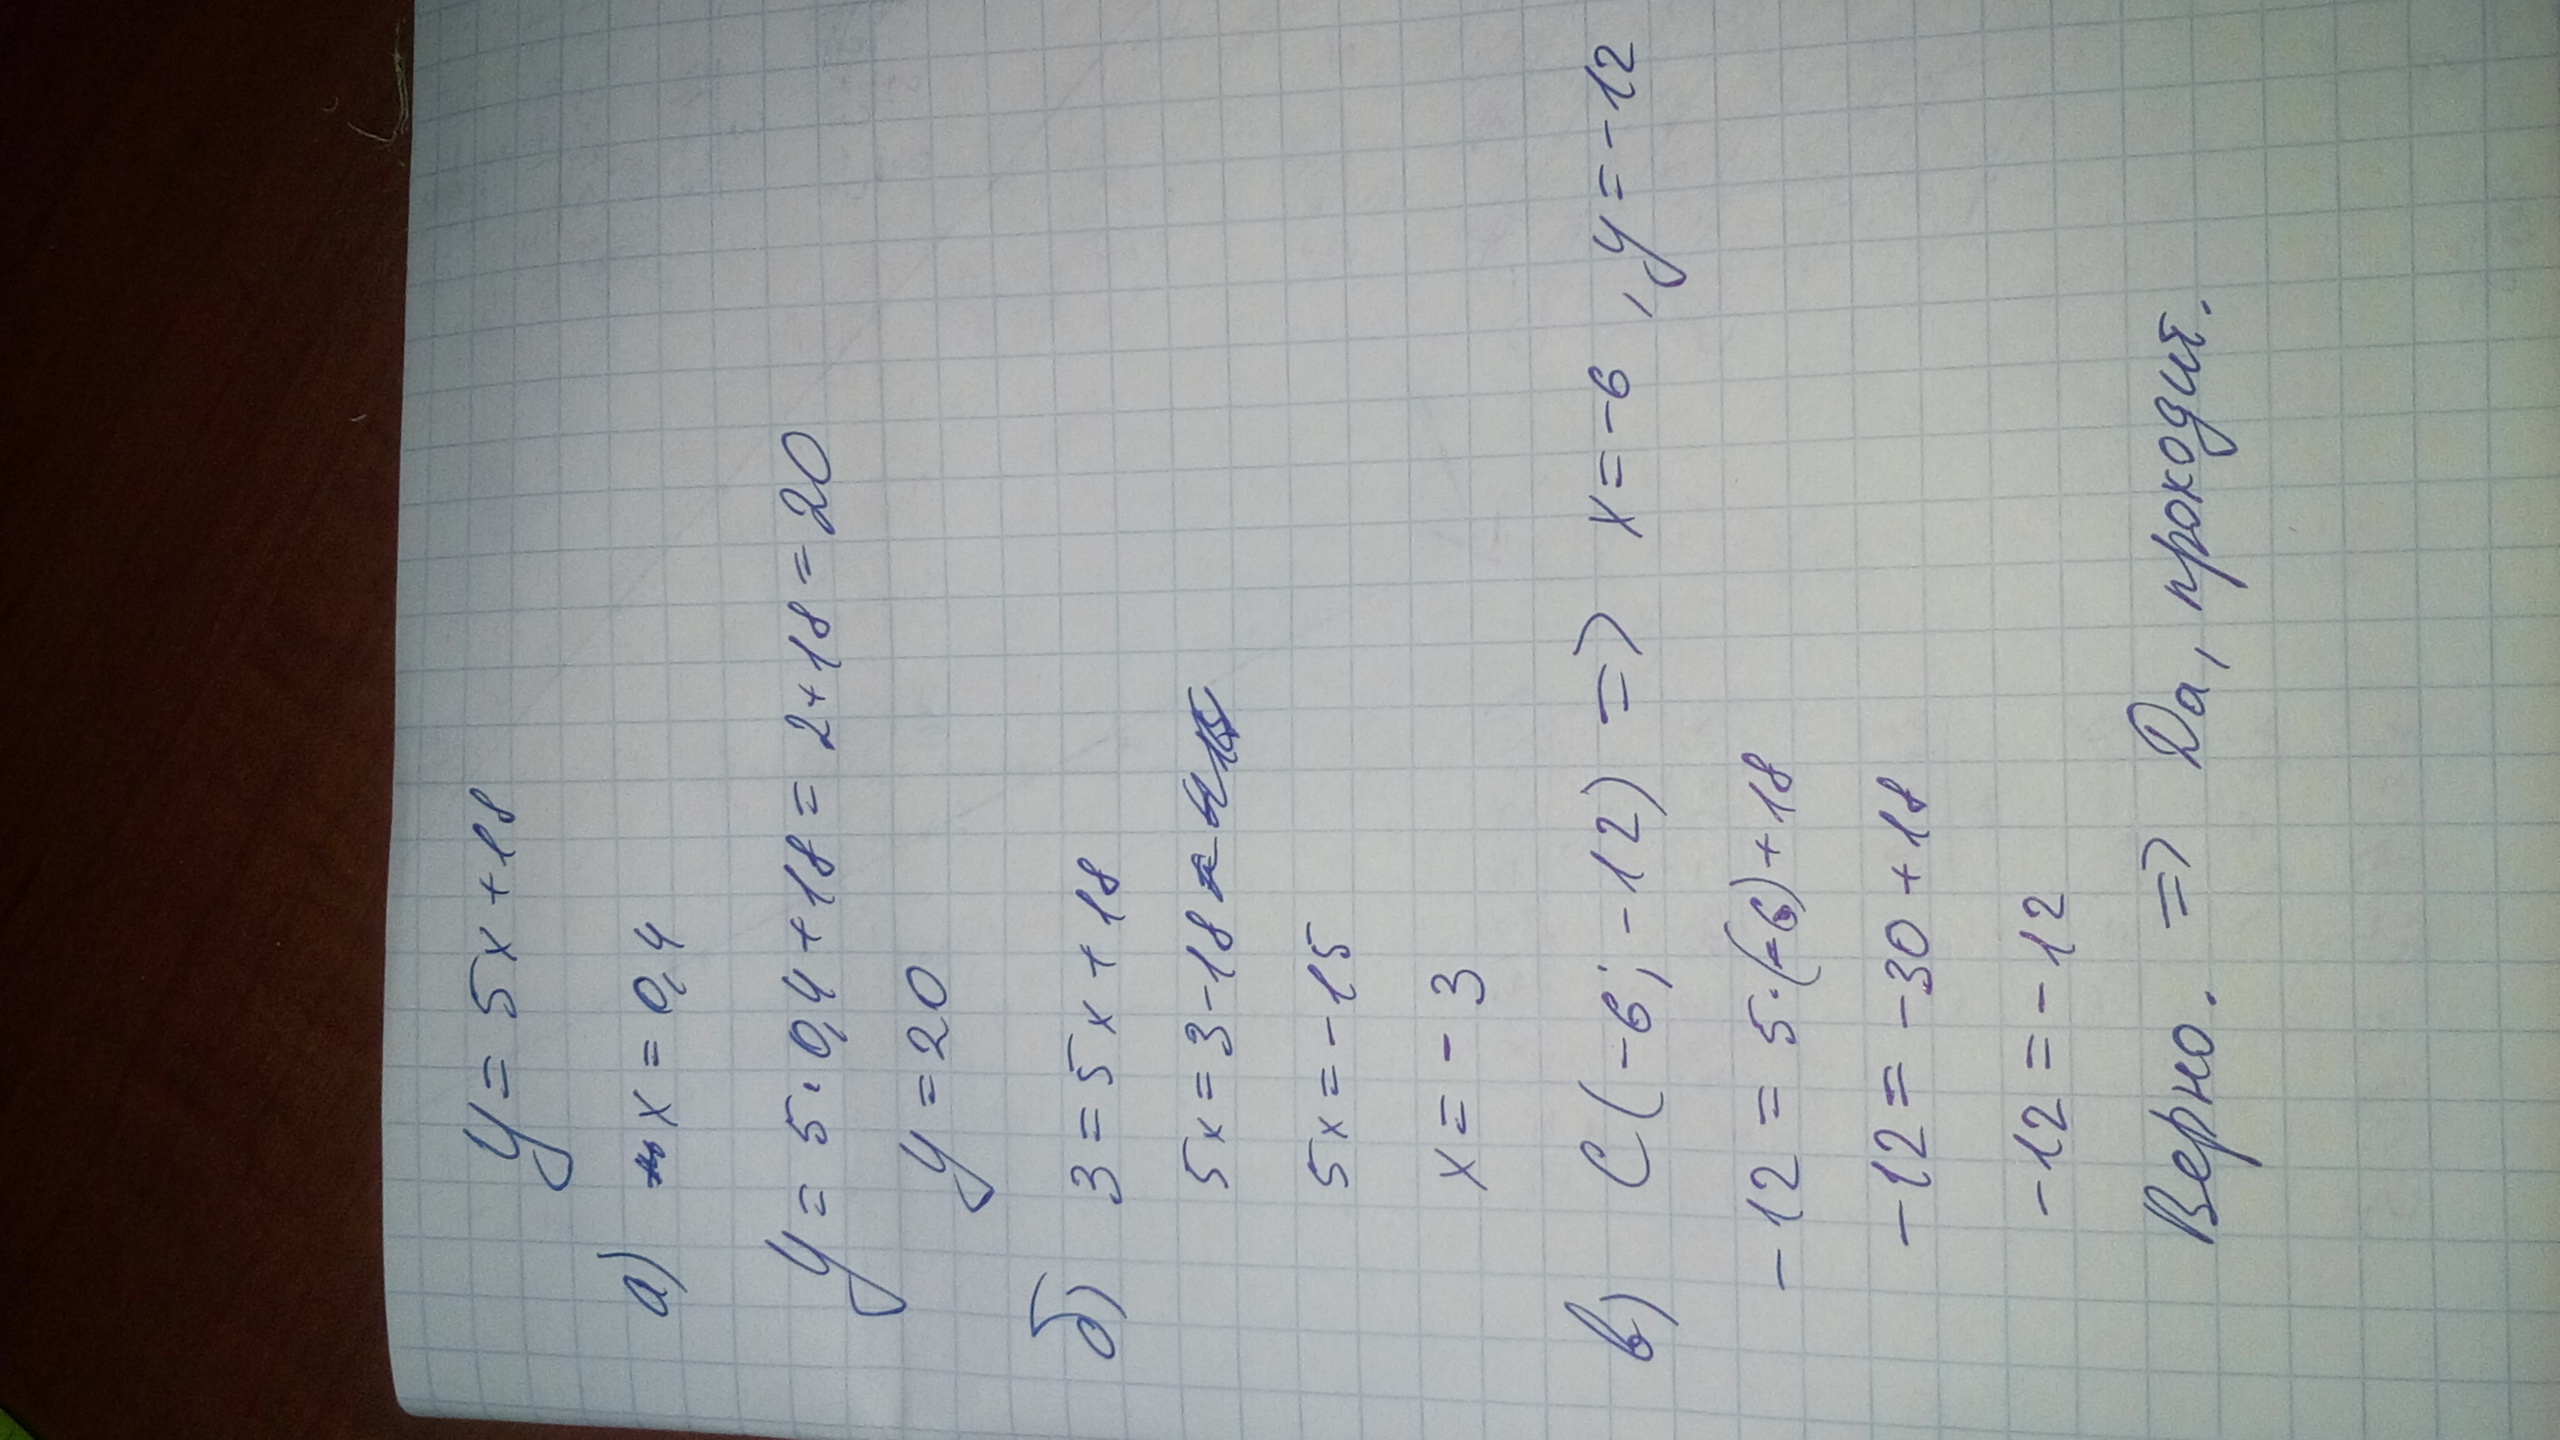 y = 5x + 18
а) x = 0,4
y = 5 · 0,4 + 18 = 2 + 18 = 20
y = 20
б) 3 = 5x + 18
5x = 3 - 18
5x = - 15
x = - 3
в) C (-6; -12) => x = -6 , y = -12
-12 = 5·(-6) + 18
-12 = -30 + 18
-12 = -12
Верно. => Да, проходит.